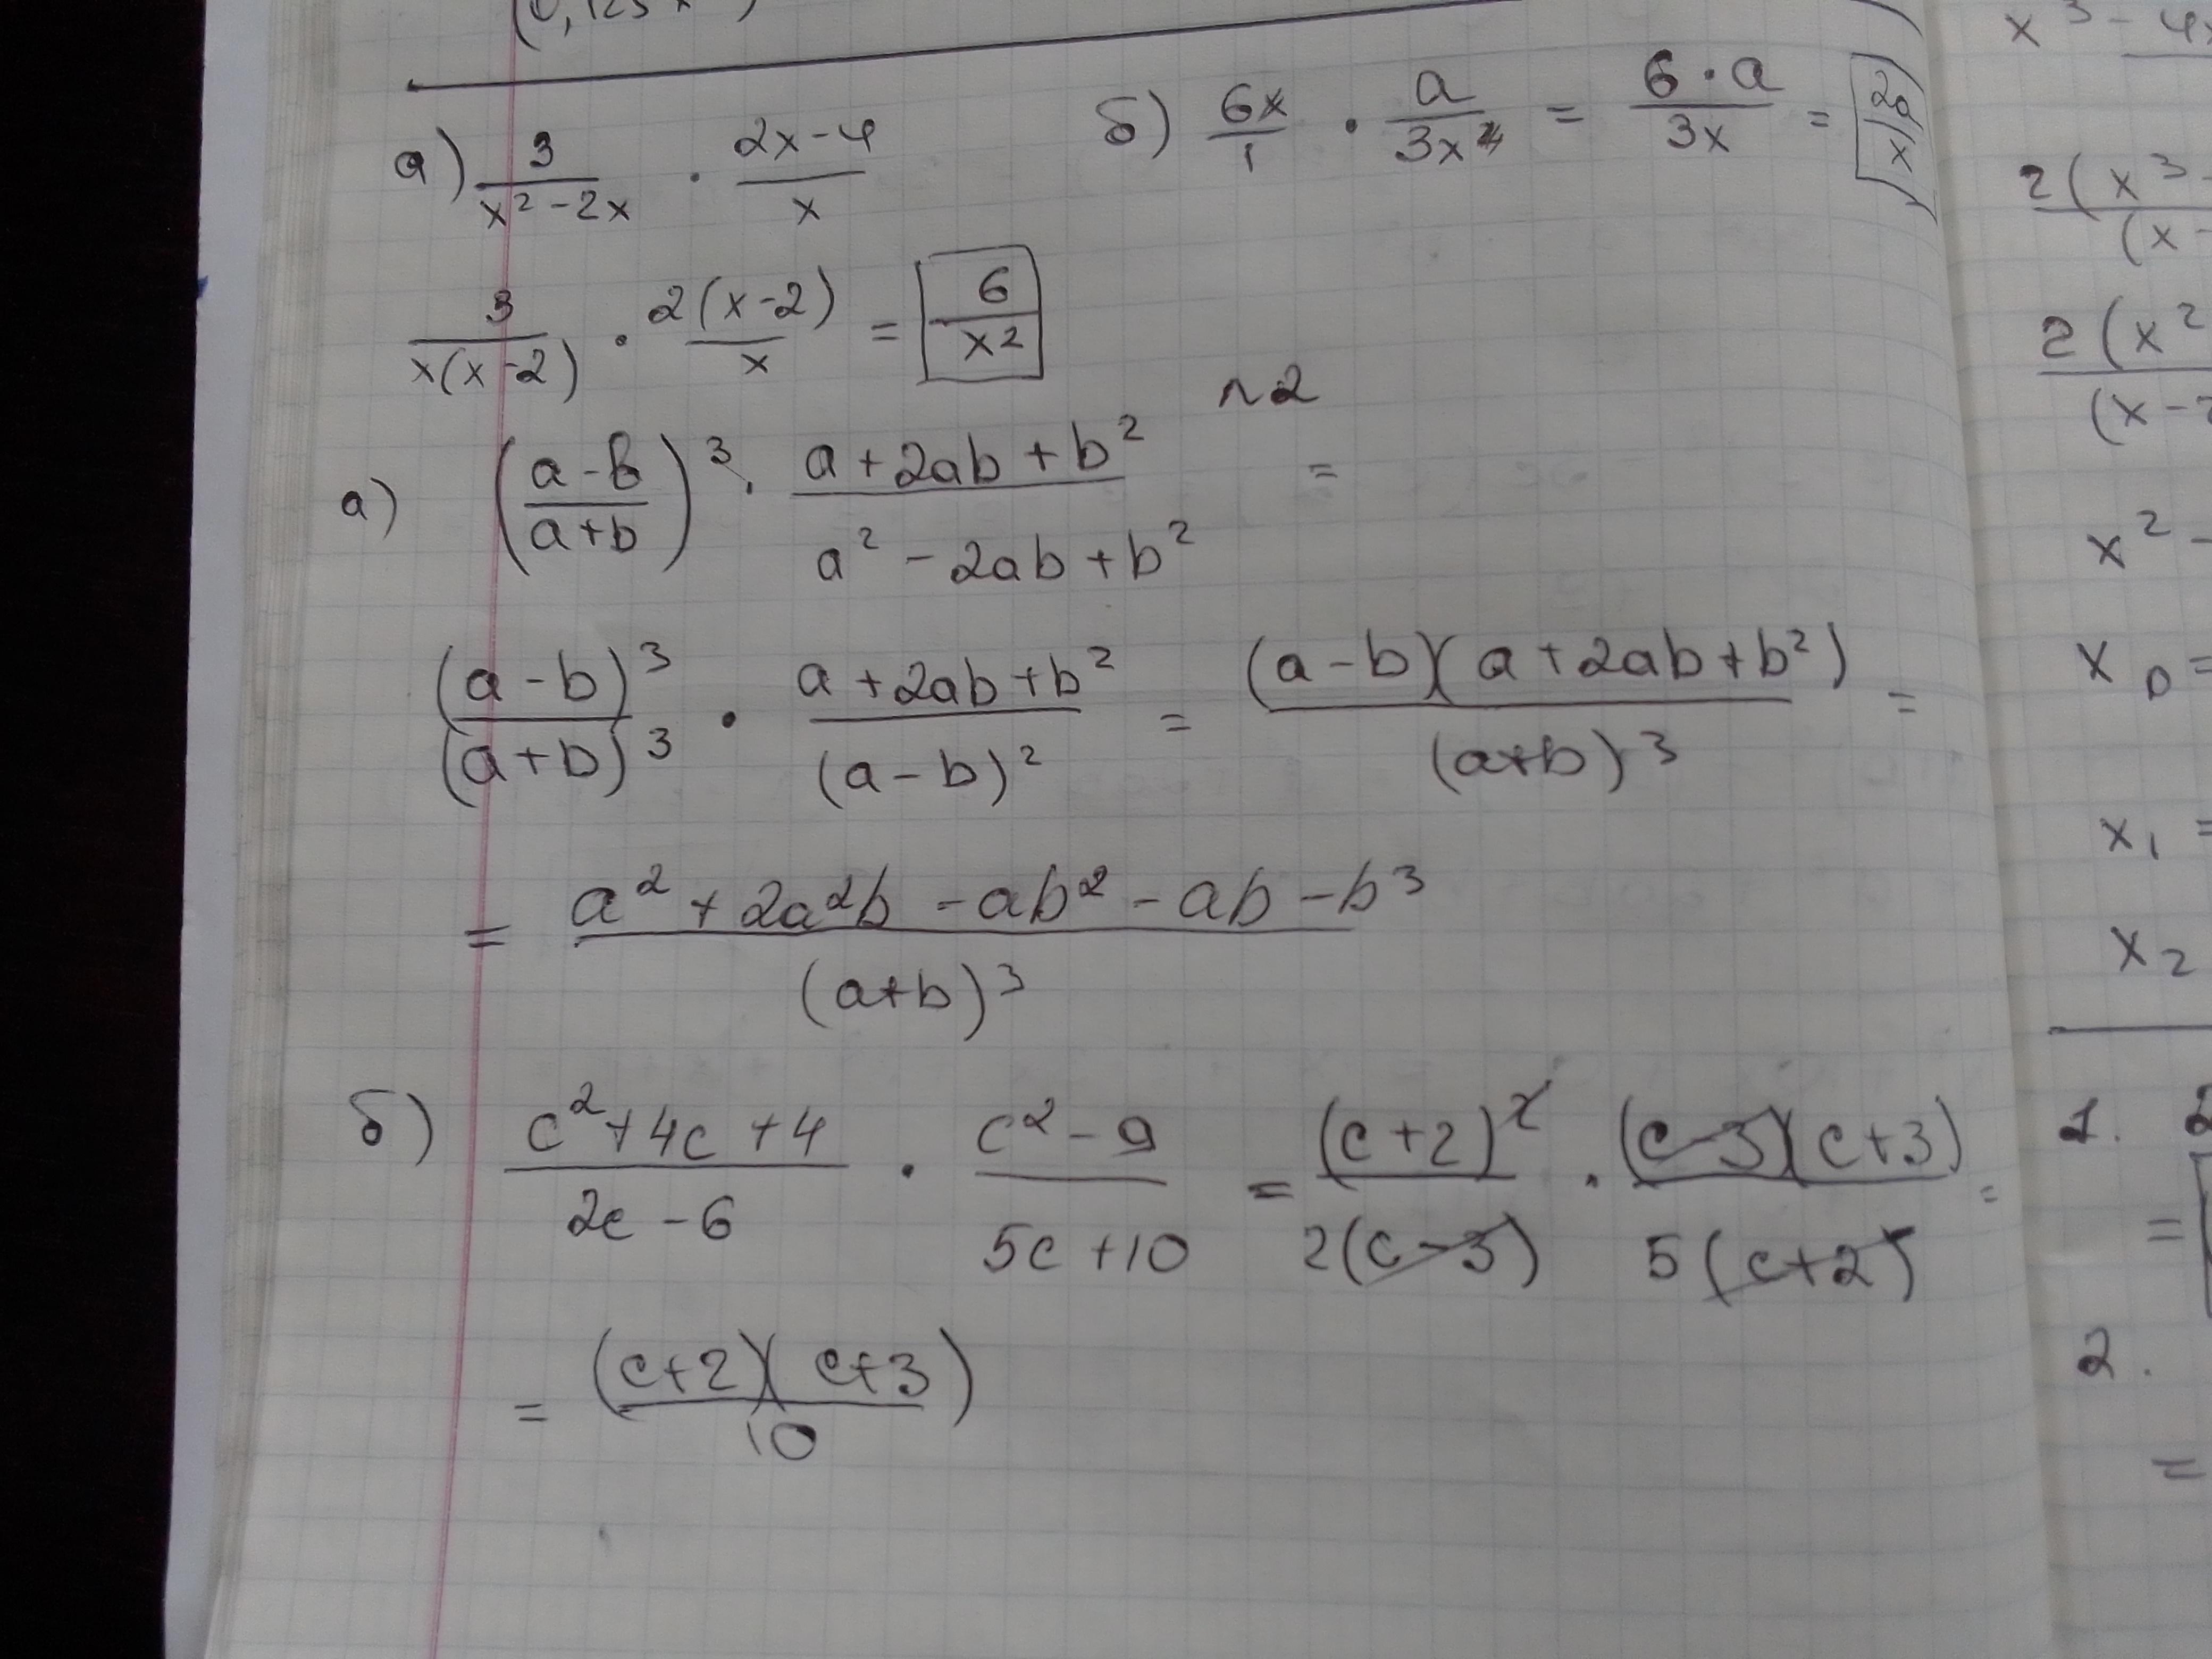 (0,125x
а) 3/(x² - 2x) · (2x - 4)/x
б) 6x/1 · a/(3x²) = (6 · a)/(3x) = 2a/x
3/(x(x - 2)) · 2(x - 2)/x = 6/x²
n2
а) ((a - b)/(a + b))³ · (a + 2ab + b²)/(a² - 2ab + b²) =
(a - b)³/(a + b)³ · (a + 2ab + b²)/(a - b)² = (a - b)(a + 2ab + b²)/(a + b)³ =
= (a² + 2a²b - ab² - ab - b³)/(a + b)³
б) (c² + 4c + 4)/(2c - 6) · (c² - 9)/(5c + 10) = (c + 2)²/(2(c - 3)) · (c - 3)(c + 3)/(5(c + 2)) =
= (c + 2)(c + 3)/10
x³ - 4x
2(x³ -
(x -
2(x²
(x - 2
x² -
x D =
x₁ =
x₂
1. 2
=
2.
=